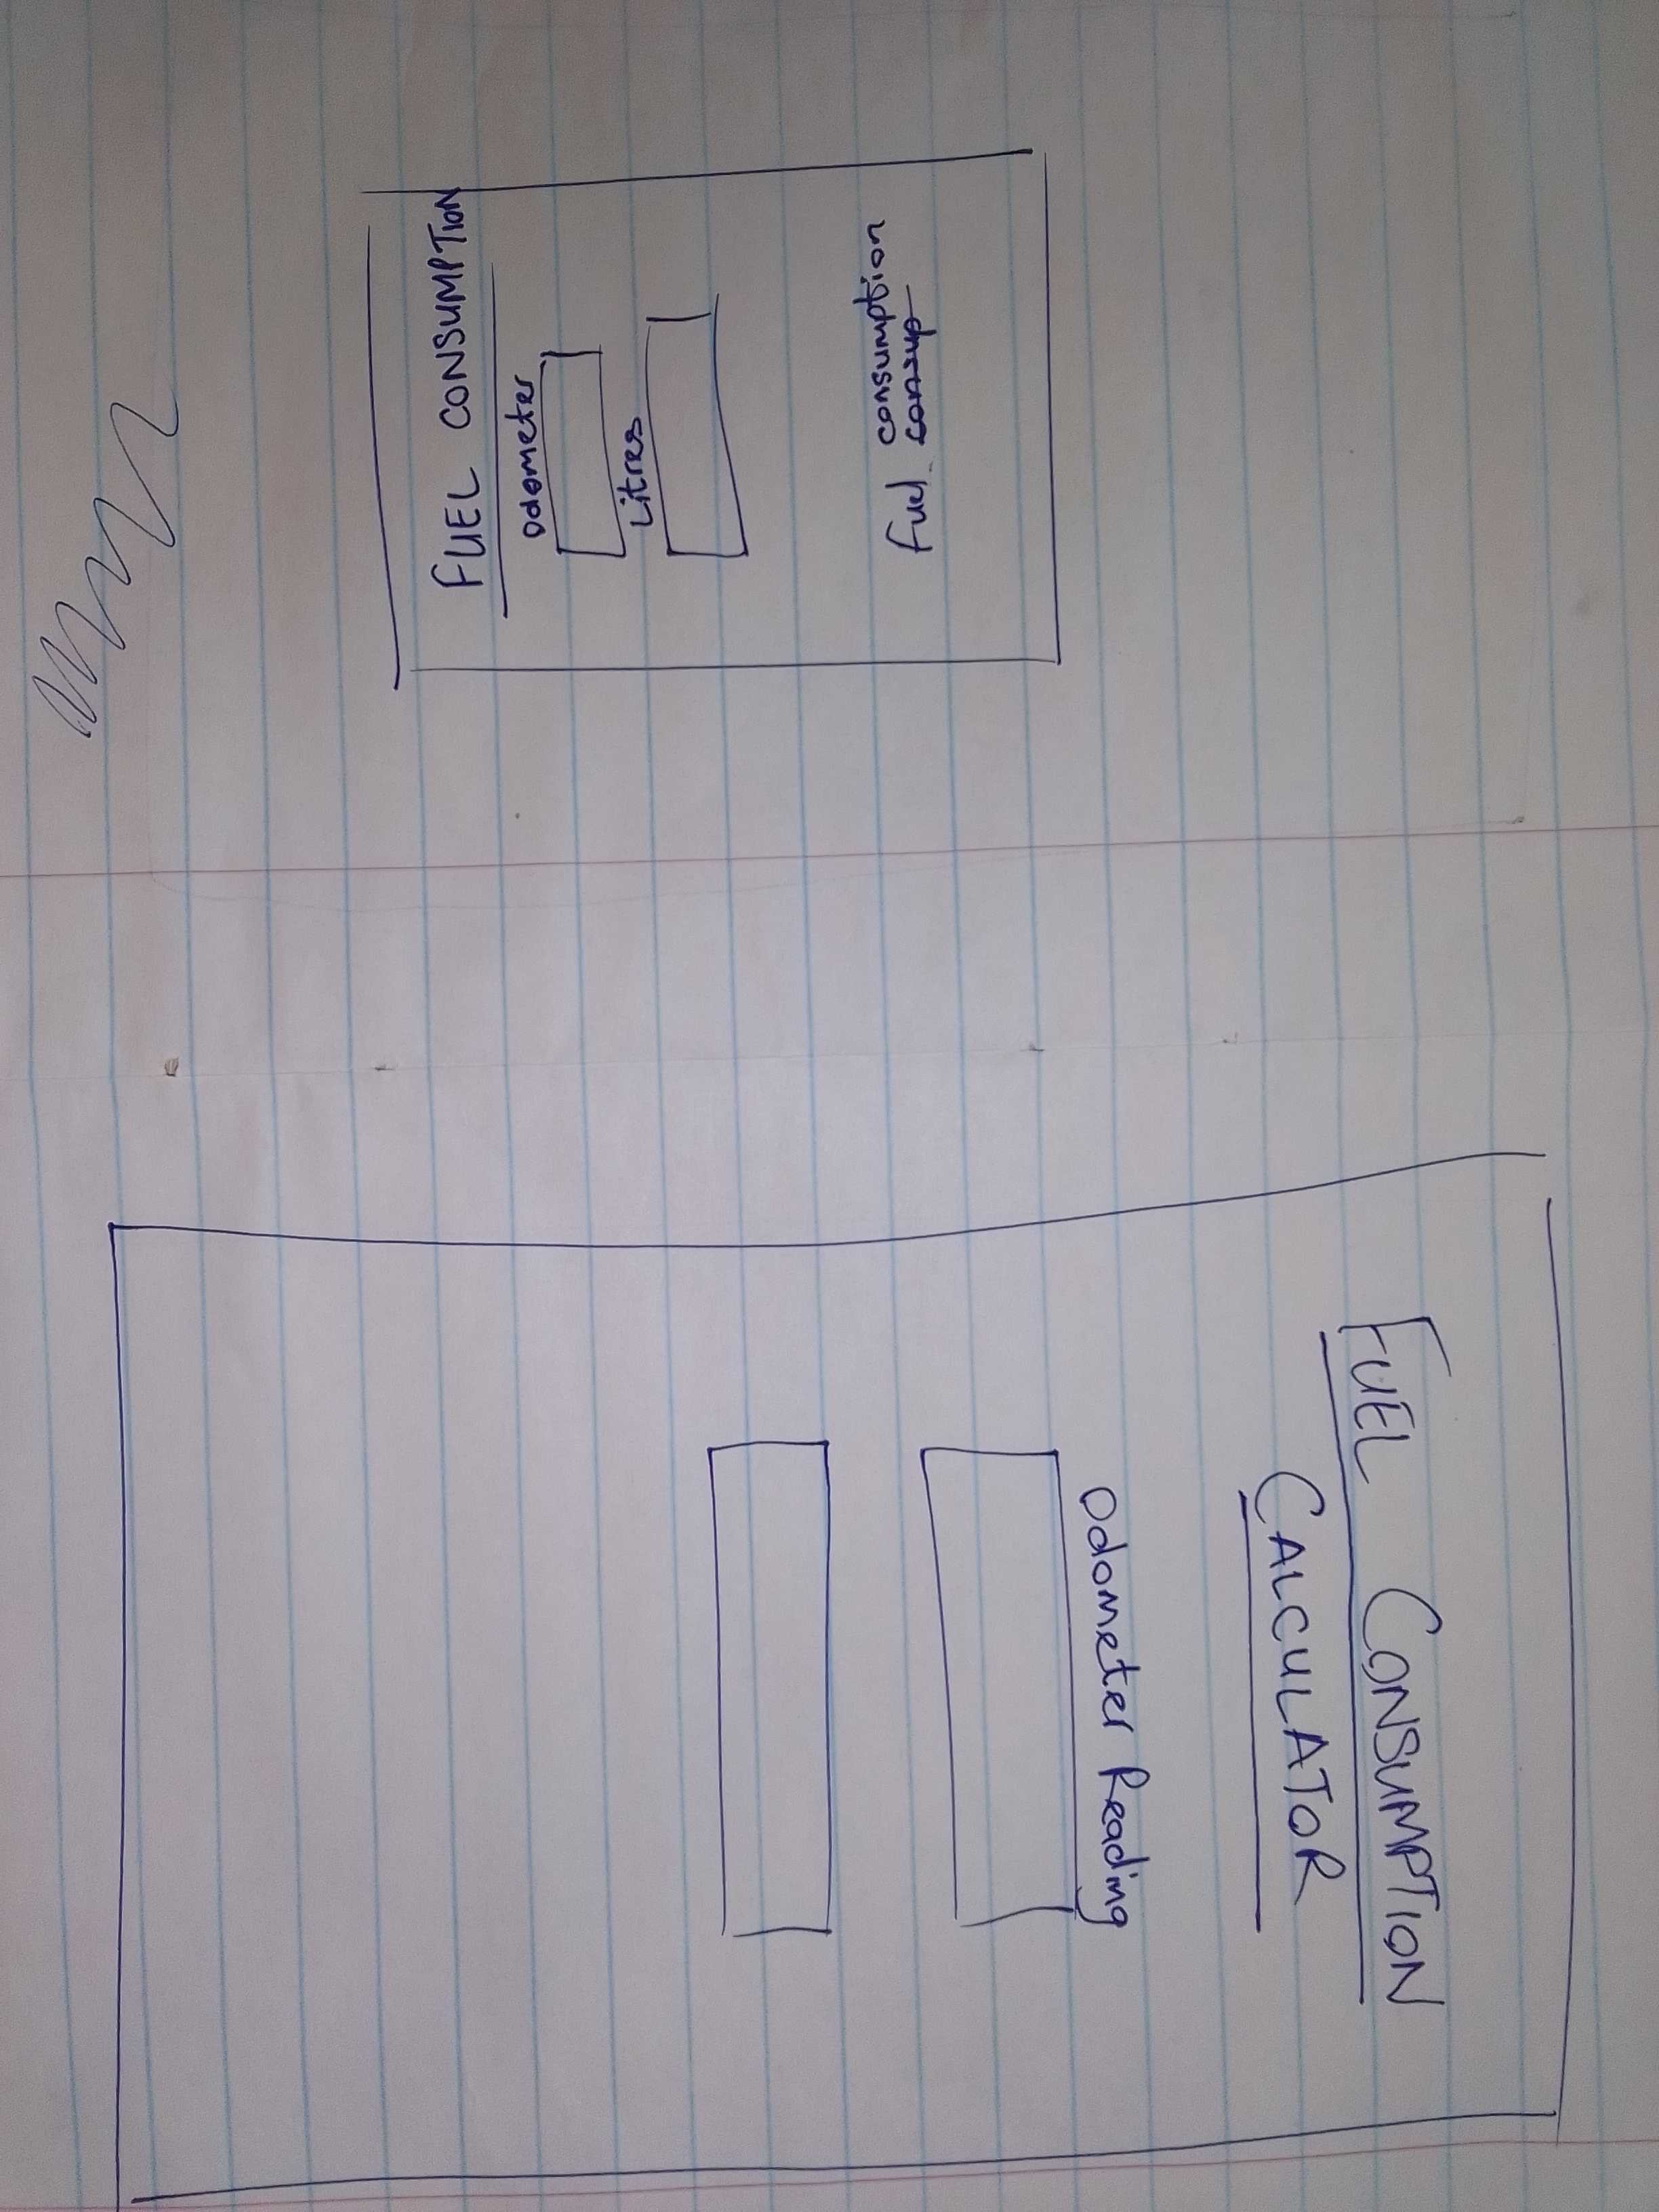 FUEL CONSUMPTION
Odometer
Litres
consumption
fuel consup
FUEL CONSUMPTION
CALCULATOR
Odometer Reading